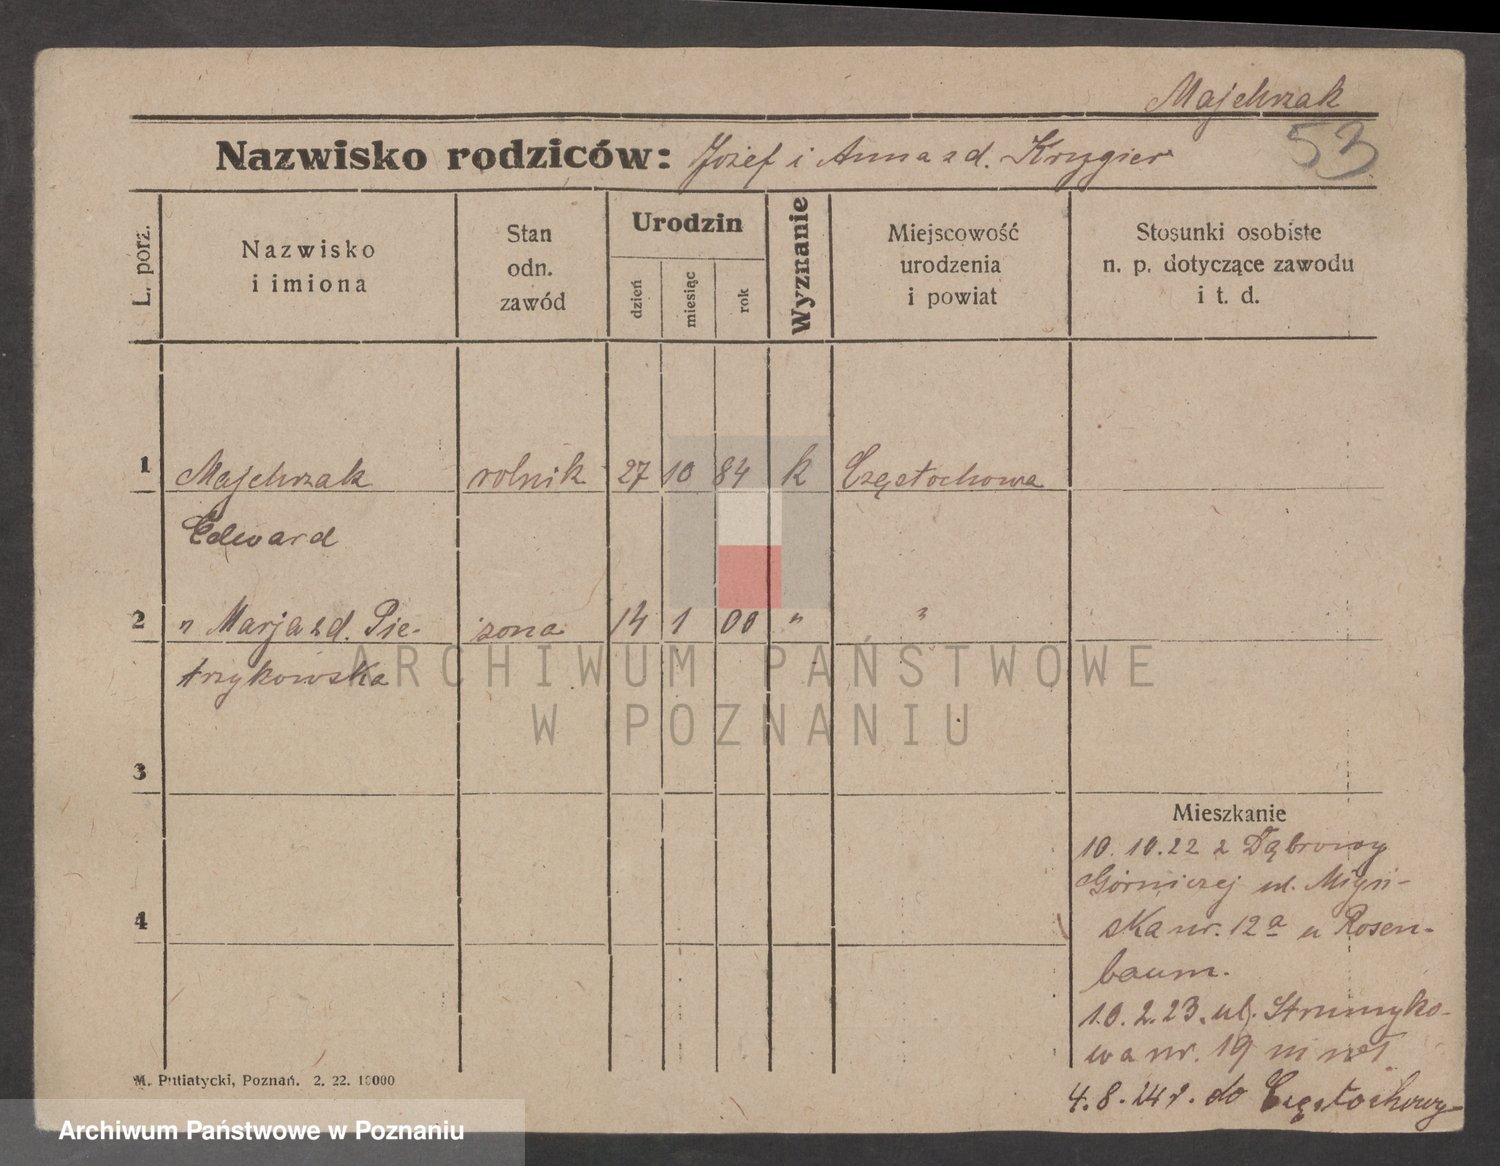 Majchrzak
53
Nazwisko rodziców: Józef i Anna z d. Krzygier
L. porz.
Nazwisko
i imiona
Stan
odn.
zawód
Urodzin
dzień
miesiąc
rok
Wyznanie
Miejscowość
urodzenia
i powiat
Stosunki osobiste
n. p. dotyczące zawodu
i t. d.
1 Majchrzak rolnik 27 10 84 k Częstochowa
Edward
2 " Marja z d. Pie- żona 14 1 00 " "
trzykowska
3
4
Mieszkanie
10. 10. 22 z Dąbrowy
Górniczej ul.
ska nr. 12a u Rosen-
baum.
10. 2. 23. ul. Strumyko-
wa nr. 19
4. 8. 24 r. do Częstochowy
M. Putiatycki, Poznań. 2. 22. 10000
ARCHIWUM PAŃSTWOWE
W POZNANIU
Archiwum Państwowe w Poznaniu